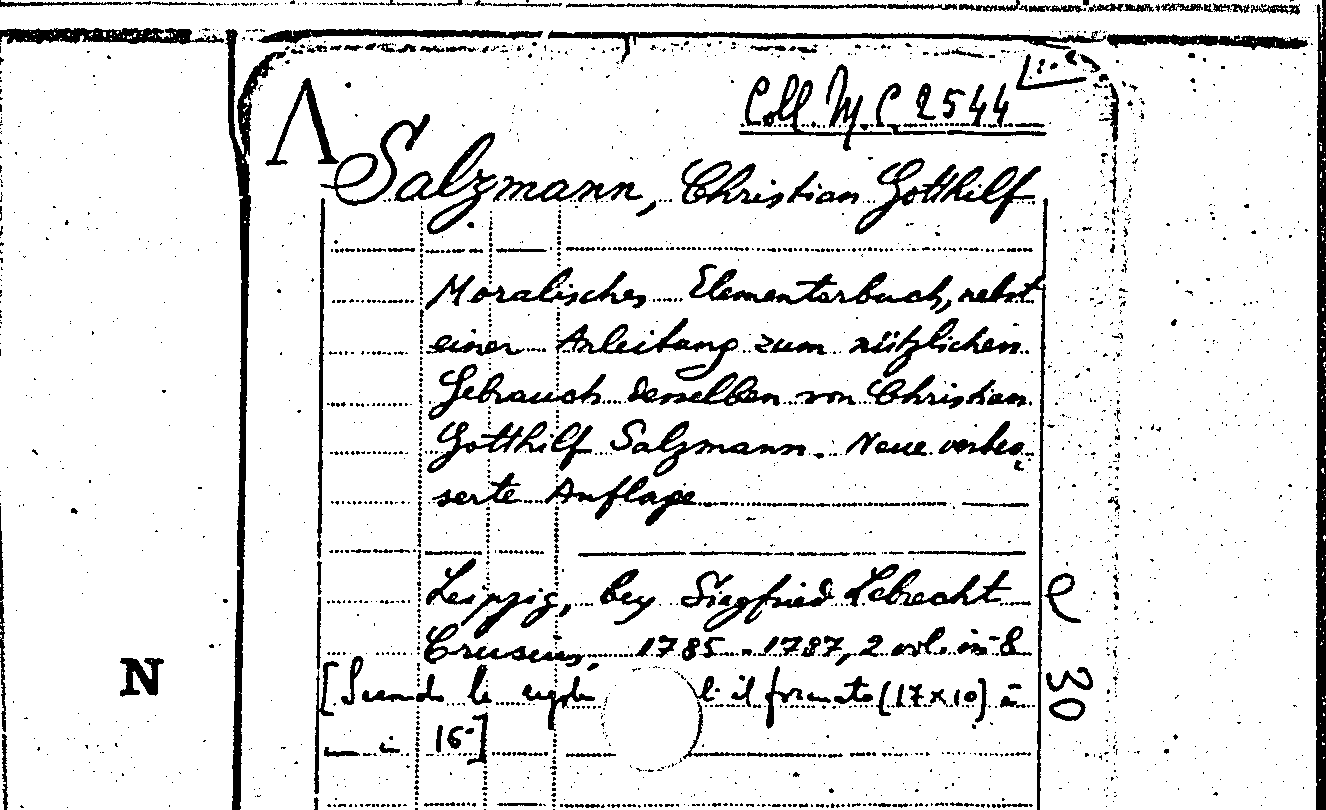 Coll. M. C. 2544
Λ
Salzmann, Christian Gotthilf
Moralisches Elementarbuch, nebst
einer Anleitung zum nützlichen
Gebrauch desselben von Christian
Gotthilf Salzmann. Neue verbes
serte Auflage
Leipzig, bey Siegfried Lebrecht
Crusius, 1785-1787, 2 vol. in-8
[Secondo le il formato (17×10) è
in 16°]
N
e 30